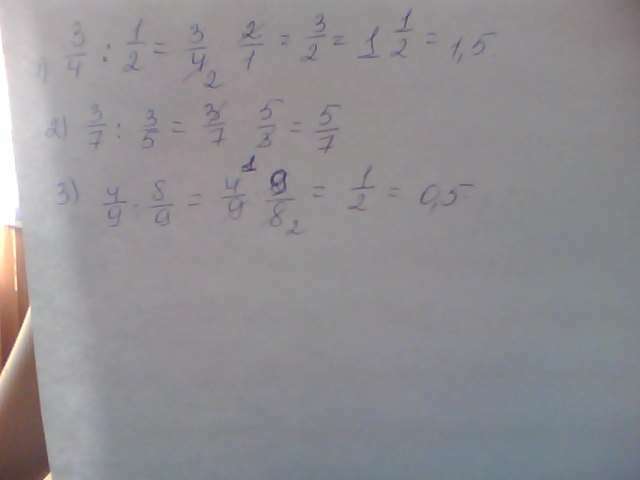 1) 3/4 : 1/2 = 3/4 2 2/1 = 3/2 = 1 1/2 = 1,5
2) 3/7 : 3/5 = 3/7 5/3 = 5/7
3) 4/9 : 8/9 = 4/9 1 9/8 2 = 1/2 = 0,5